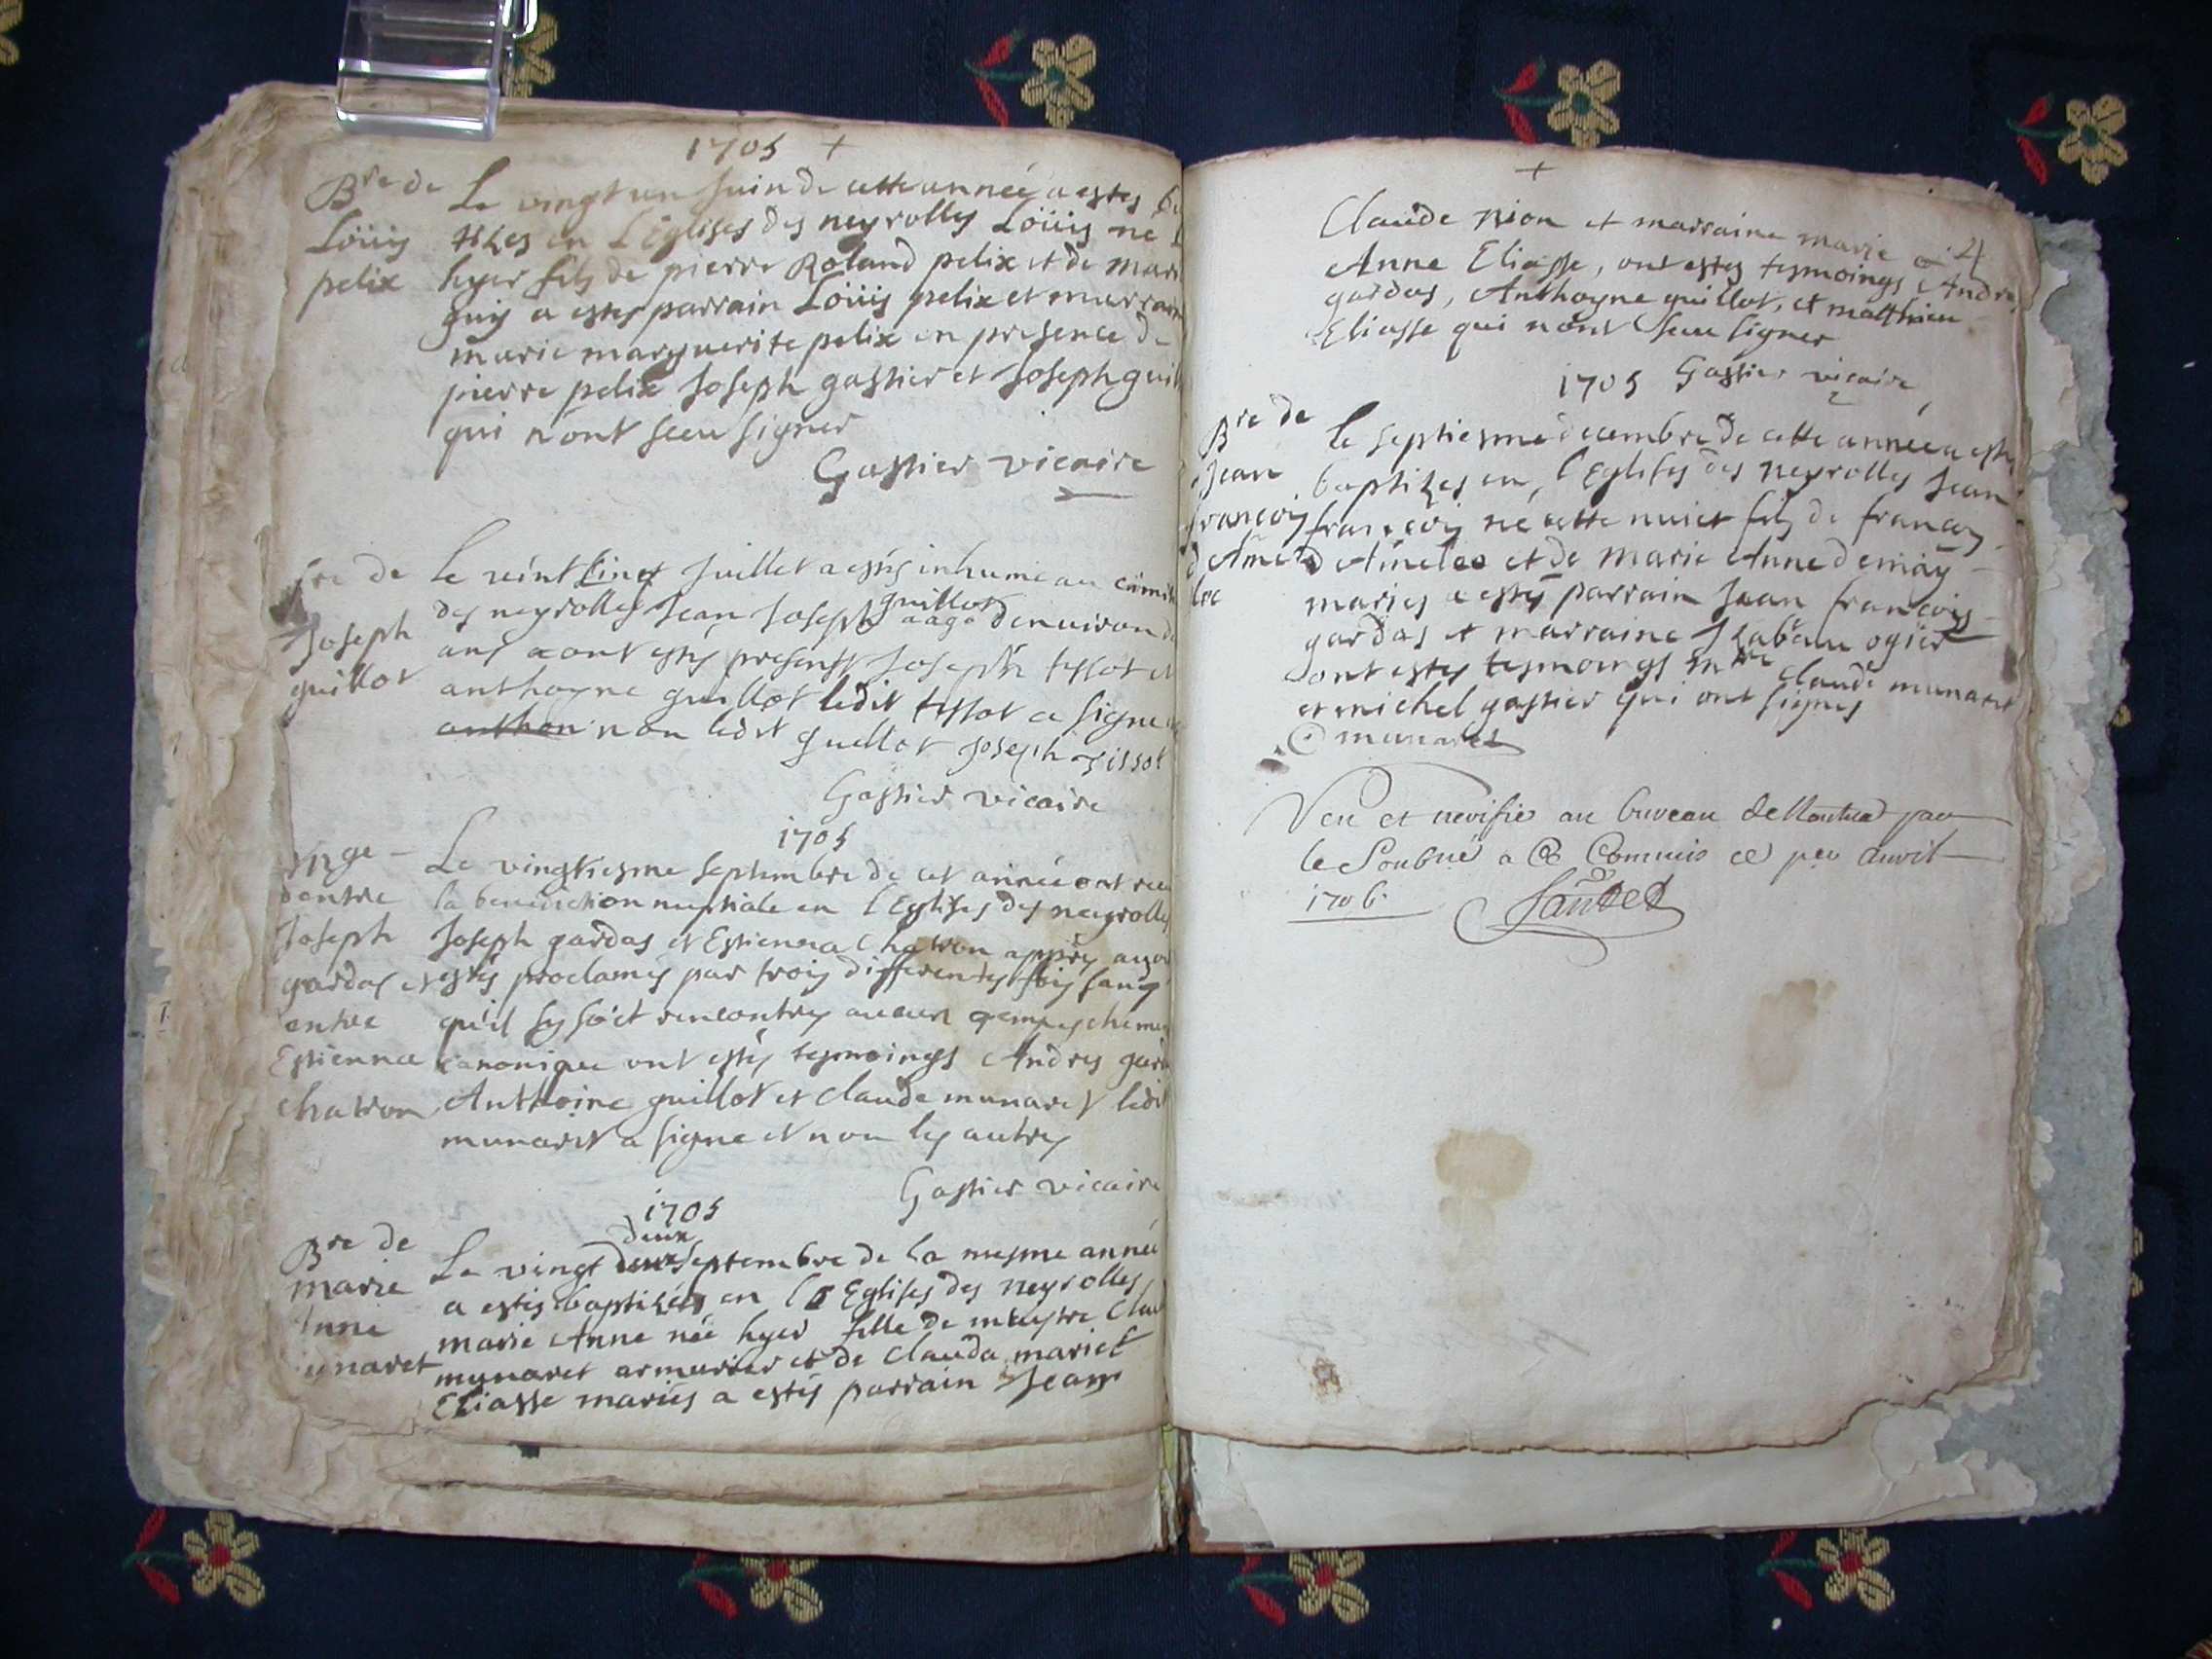 1705 +
Bre de
Loüis
pelix
Le vingt un Juin de cette année a estes
tizes en l'Eglises des neyrolles Loüis ne
hyer fils de pierre Roland pelix et de
guy a estes parrain Loüis pelix et
marie marguerite pelix en presence de
pierre pelix Joseph gastier et Joseph
qui n'ont sceu signer
Gastier vicaire
de
Joseph
guillot
Le veint cinq Juillet a estés inhume au
guillot
des neyrolles Jean Joseph aage denuiron
ans ont estés presents Joseph tissot et
anthoyne guillot ledit tissot a signe
anthon non ledit guillot Joseph Tissot
Gastier vicaire
1705
dentre
Joseph
gardas et
entre
Estienna
chatron
Le vingtiesme septembre de cet année ont
la benediction nuptiale en l'Eglises des neyrolles
Joseph gardas et Estienna Chatron appres
estés proclamés par trois differentes fois sans
qu'il sy soit rencontrés aucun
canonique ont estés tesmoings Andres
Anthoine guillot et Claude munaret ledit
munaret a signe et non les autres
Gastier vicaire
1705
Bre de
marie
Anne
munaret
deux
Le vingt deux septembre de la mesme année
a estés baptizés en l Eglises des neyrolles
marie Anne née hyer fille de maystre
munaret armurier et de Clauda mariet
Eliasse mariés a estés parrain Jean
+
4
Claude Nion et marraine marie
Anne Eliasse, ont estes tesmoings Andre
gardas, Anthoyne guillot, et matthieu
Eliasse qui n'ont sceu signer
Gastier vicaire
1705
Bre de
Jean
francois
d Ame
Le septiesme decembre de cette année a
baptizes en l'Eglises des neyrolles Jean
francois né cette nuict fils de francois
et de marie Anne
mariés a estés parrain Jean francois
gardas et marraine Izabeau ogier
ont estes tesmoings mtre Claude munaret
et michel gastier qui ont signes
C munaret
Veu et verifie au bureau de Nantua par
le Soubné a ce Commis ce pr avril
1706.